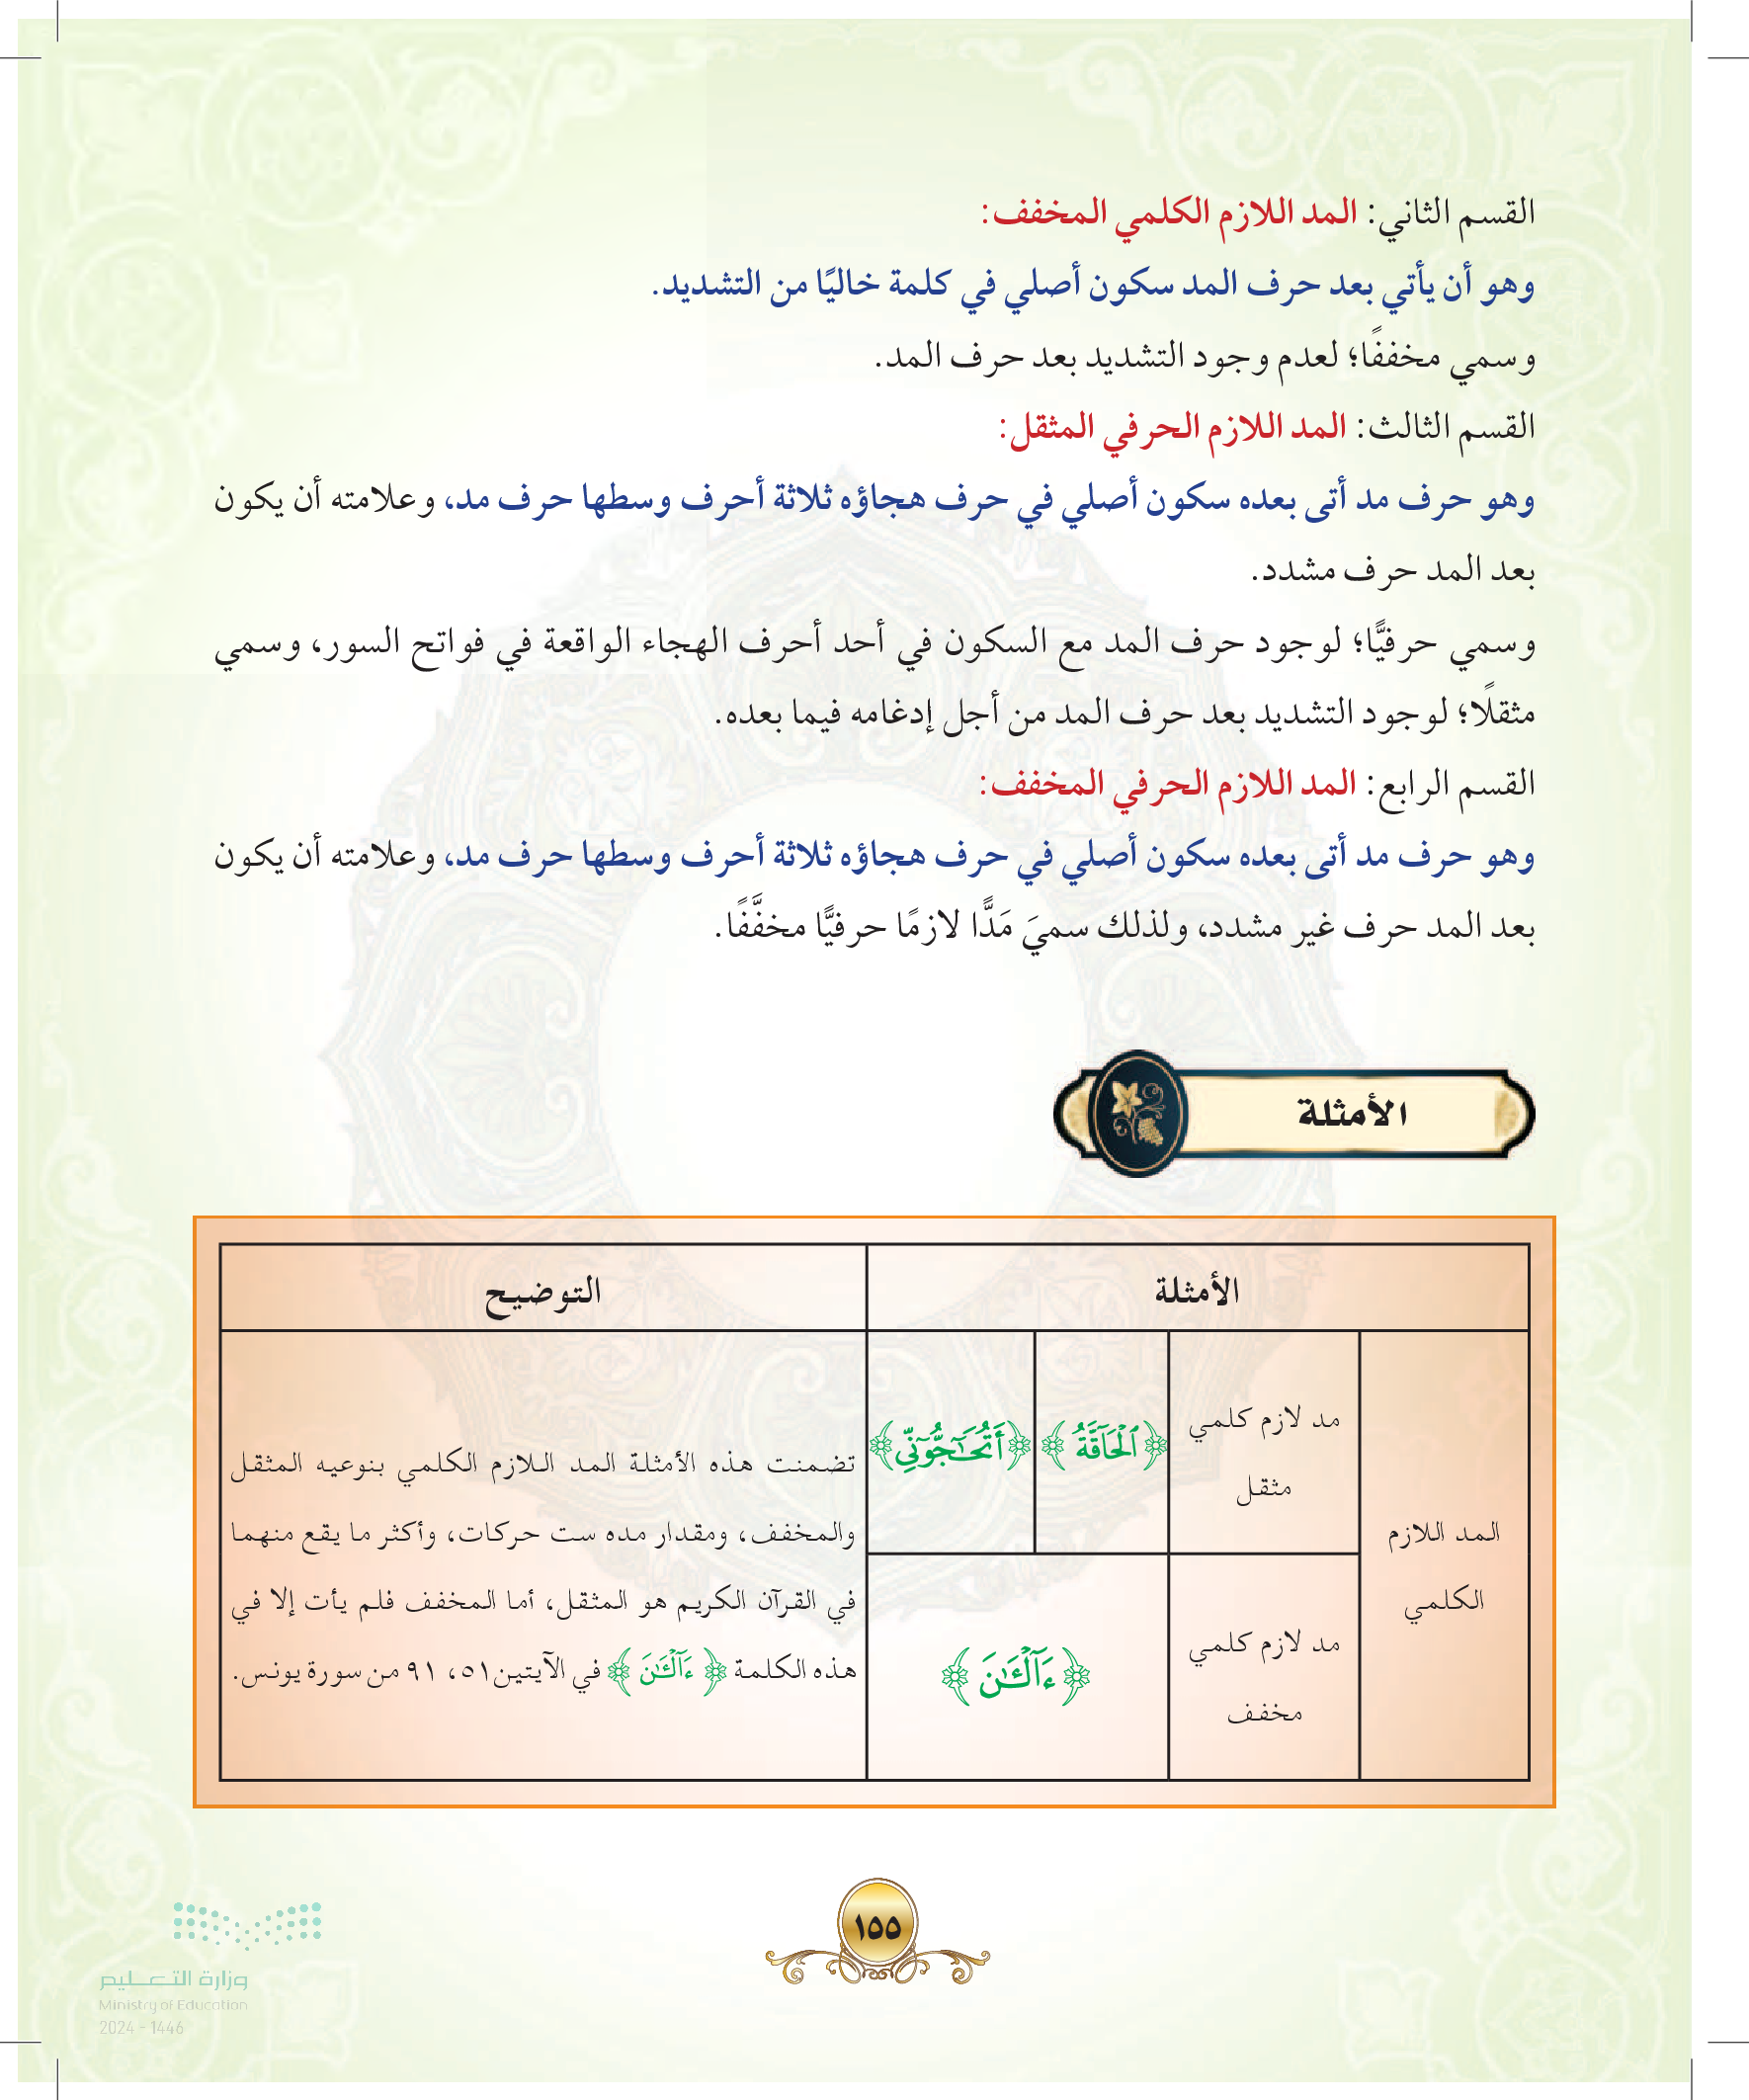 القسم الثاني: المد اللازم الكلمي المخفف:
وهو أن يأتي بعد حرف المد سكون أصلي في كلمة خاليًا من التشديد.
وسمي مخففًا؛ لعدم وجود التشديد بعد حرف المد.
القسم الثالث: المد اللازم الحرفي المثقل:
وهو حرف مد أتى بعده سكون أصلي في حرف هجاؤه ثلاثة أحرف وسطها حرف مد، وعلامته أن يكون
بعد المد حرف مشدد.
وسمي حرفيًّا؛ لوجود حرف المد مع السكون في أحد أحرف الهجاء الواقعة في فواتح السور، وسمي
مثقلًا؛ لوجود التشديد بعد حرف المد من أجل إدغامه فيما بعده.
القسم الرابع: المد اللازم الحرفي المخفف:
وهو حرف مد أتى بعده سكون أصلي في حرف هجاؤه ثلاثة أحرف وسطها حرف مد، وعلامته أن يكون
بعد المد حرف غير مشدد، ولذلك سميَ مَدًّا لازمًا حرفيًّا مخفَّفًا.
الأمثلة
الأمثلة
التوضيح
المد اللازم
الكلمي
مد لازم كلمي
مثقل
﴿ٱلۡحَآقَّةُ﴾
﴿أَتُحَٰٓجُّوٓنِّي﴾
مد لازم كلمي
مخفف
﴿ءَآلۡـَٰٔنَ﴾
تضمنت هذه الأمثلة المد اللازم الكلمي بنوعيه المثقل
والمخفف، ومقدار مده ست حركات، وأكثر ما يقع منهما
في القرآن الكريم هو المثقل، أما المخفف فلم يأت إلا في
هذه الكلمة ﴿ءَآلۡـَٰٔنَ﴾ في الآيتين ٥١، ٩١ من سورة يونس.
١٥٥
وزارة التعليم
Ministry of Education
2024 - 1446